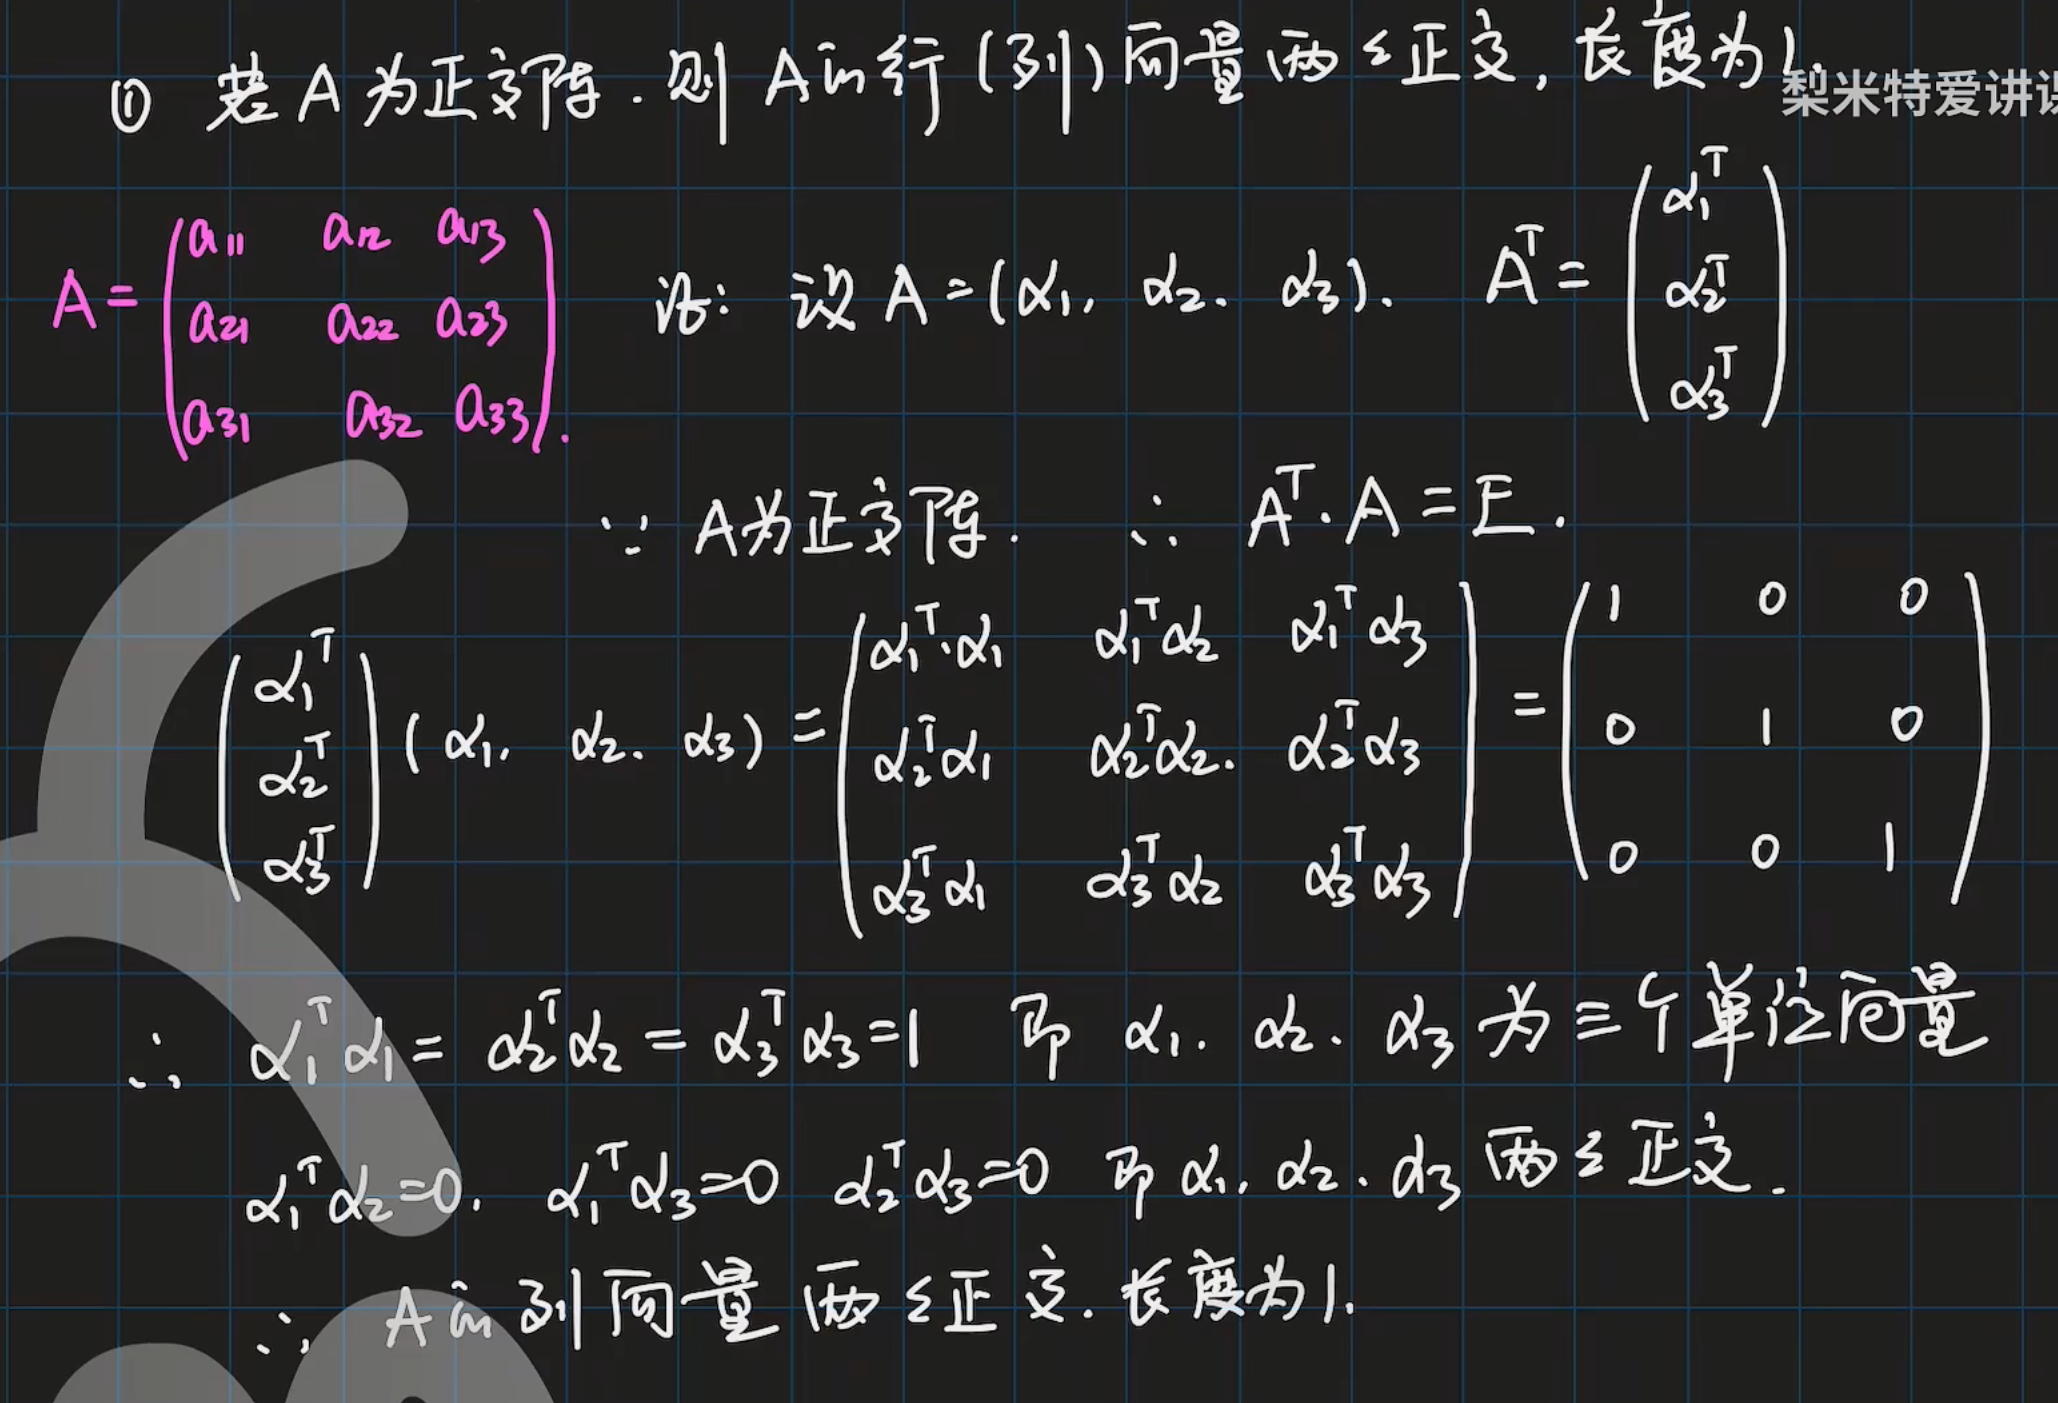 ① 若A为正交阵.则A的行(列)向量两两正交,长度为1.
梨米特爱讲课
A=(a11 a12 a13
a21 a22 a23
a31 a32 a33).
证:设A=(α1, α2、α3). A^T=(α1^T
α2^T
α3^T)
∵ A为正交阵. ∴ A^T·A=E.
(α1^T
α2^T
α3^T)(α1, α2、α3)=(α1^T·α1 α1^Tα2 α1^Tα3
α2^Tα1 α2^Tα2. α2^Tα3
α3^Tα1 α3^Tα2 α3^Tα3)=(1 0 0
0 1 0
0 0 1)
∴ α1^Tα1=α2^Tα2=α3^Tα3=1 即 α1. α2、α3为三个单位向量
α1^Tα2=0. α1^Tα3=0 α2^Tα3=0 即α1, α2、α3两两正交.
∴ A的列向量两两正交.长度为1.